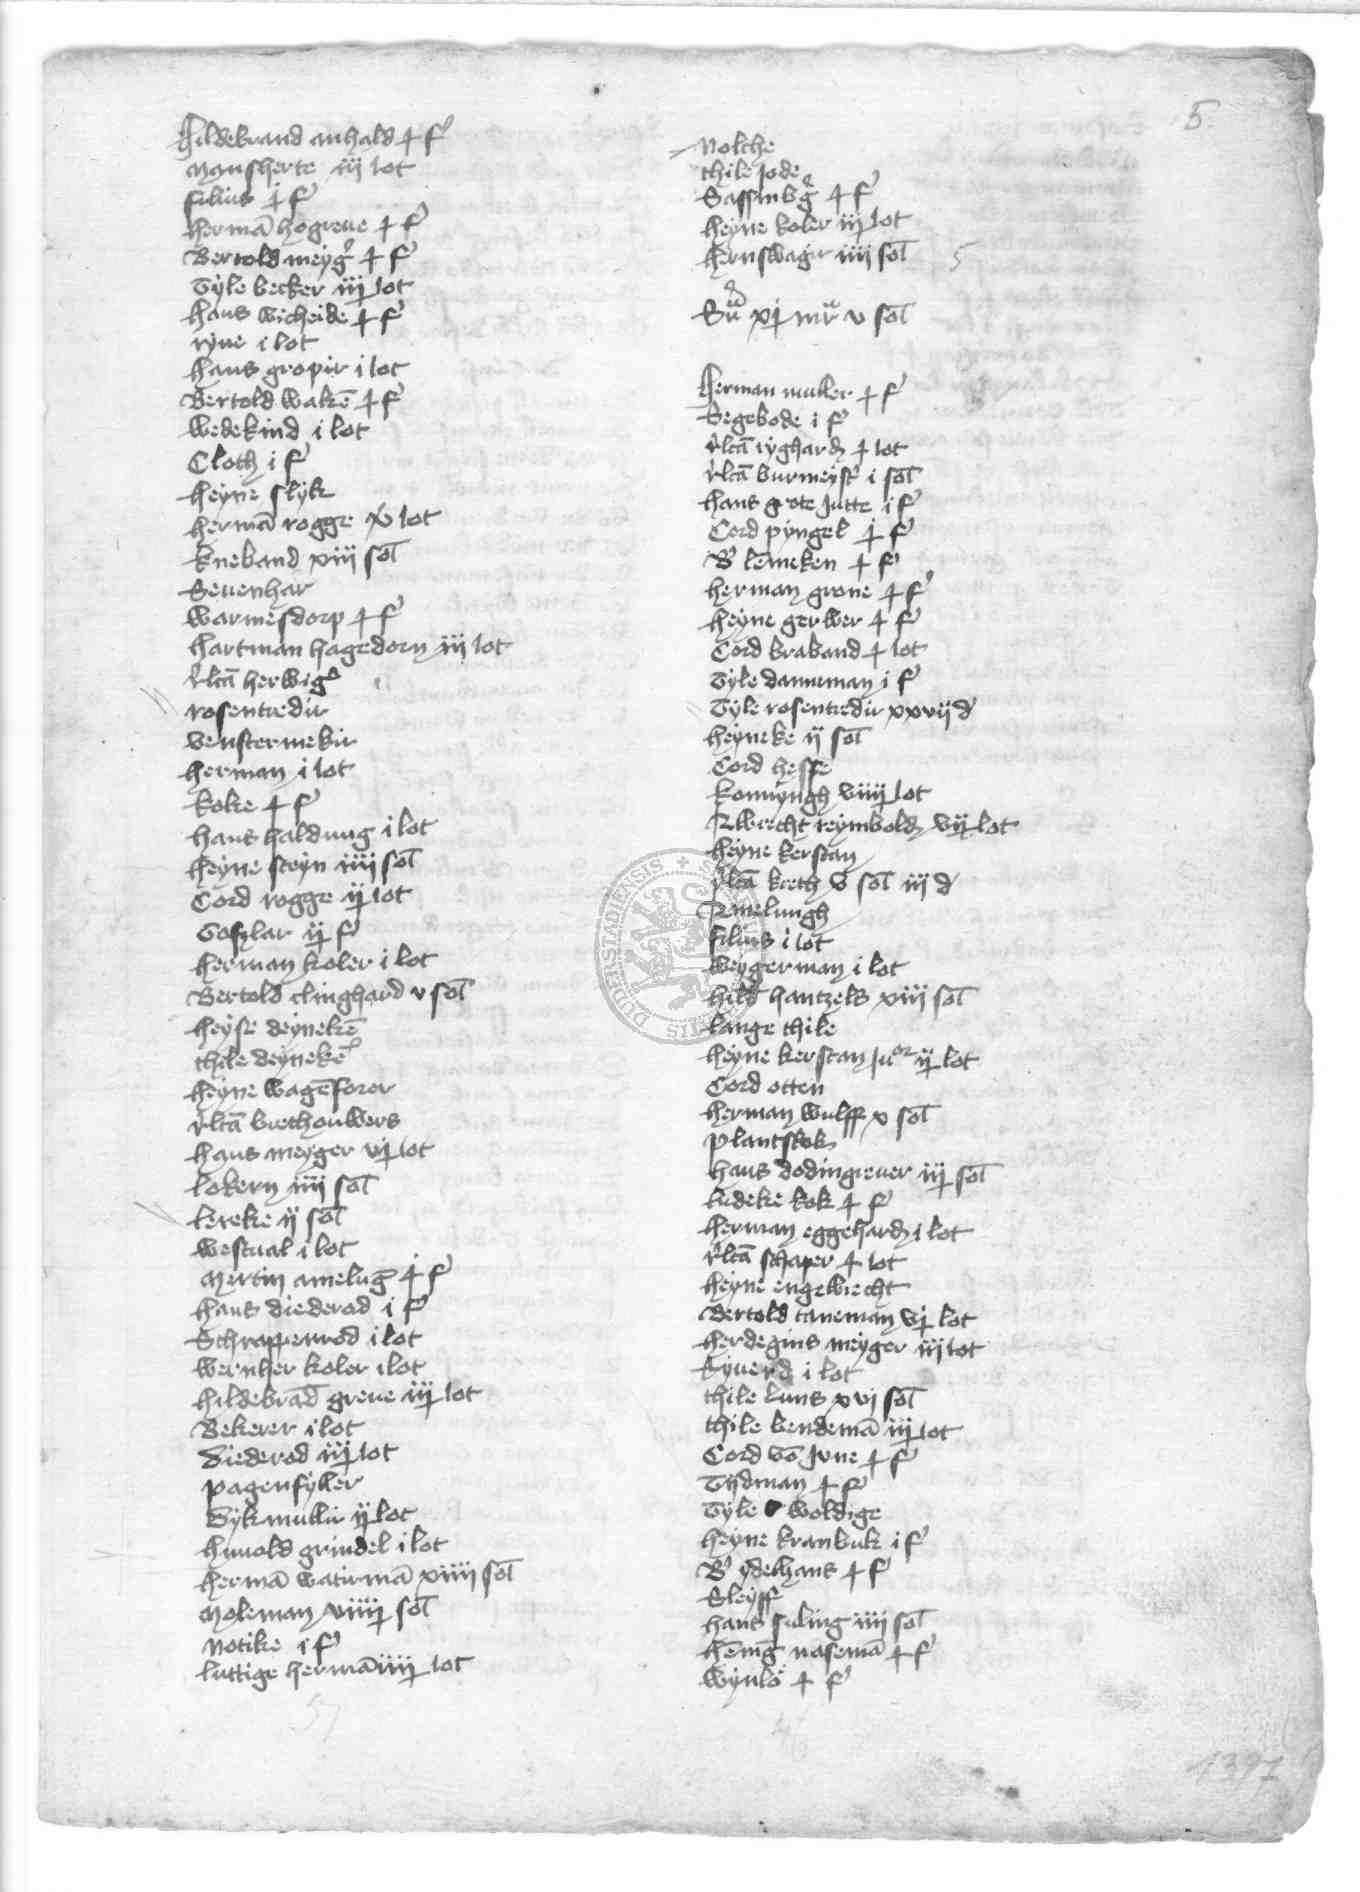 5.
Hildebrand anhald ɟ f'
Mansherte iij lot
filius ɟ f'
hermā hogreue ɟ f'
Bertold meyg' ɟ f'
Tyle becker iij lot
hans wicheide ɟ f'
ryne i lot
hans gropir i lot
Bertold wakē ɟ f'
wedekind i lot
Cloth i f'
heyne slyk
hermā rogge xv lot
kneband xiij sol
Seuenhar
warmesdorp ɟ f'
hartman hagedorn iij lot
rosentredir
venstermekir
herman i lot
koke ɟ f'
hans haldung i lot
heyne steyn iiij sol
Cord rogge ij lot
Goslar ij f'
herman koler i lot
Bertold clinghard v sol
heyse deynekē
thile deynekē
heyne wagēforer
hans meyger vj lot
lokern iiij sol
lereke ij sol
westual i lot
Mertin amelug ɟ f'
hans diederod i f'
Schrappenrod i lot
wernher koler i lot
hildebrād greue iij lot
Bekerer i lot
Diederod iij lot
pagenfyller
Dykmullir ij lot
hunold grindel i lot
hermā watirmā xiiij sol
Moleman viiij sol
Notike i f'
luttige hermā iiij lot
Nolche
thile Jode
heyne koler iij lot
hernswagir iiij sol
Sū xj mr v sol
Herman muller ɟ f'
Segebode i f'
hans grote Jutte i f'
Cord pyngel ɟ f'
B' lēneken ɟ f'
herman grone ɟ f'
heyne gerwer ɟ f'
Cord braband ɟ lot
Tyle danneman i f'
Tyle rosentredir xxvij d'
heyneke ij sol
Cord hesse
konnyngh viiij lot
Albrecht reymbold vij lot
heyne kerstan
Amelungh
filius i lot
weygerman i lot
hantzels xiiij sol
lange thile
heyne kerstan Ju'or ij lot
Cord otten
herman wulff x sol
plantstok
hans dodingreuer iij sol
ludeke kok ɟ f'
herman eggehard i lot
schaper ɟ lot
heyne engelbrecht
Bertold taneman vj lot
herdegins meyger iij lot
Syuerd i lot
thile luns xvi sol
thile bendemā iij lot
Cord vō Jvne ɟ f'
Tydman ɟ f'
Tyle woldige
heyne kranbuk i f'
B' ydelhans ɟ f'
Sleyff
hans suling iiij sol
hēnig nasemā ɟ f'
1397